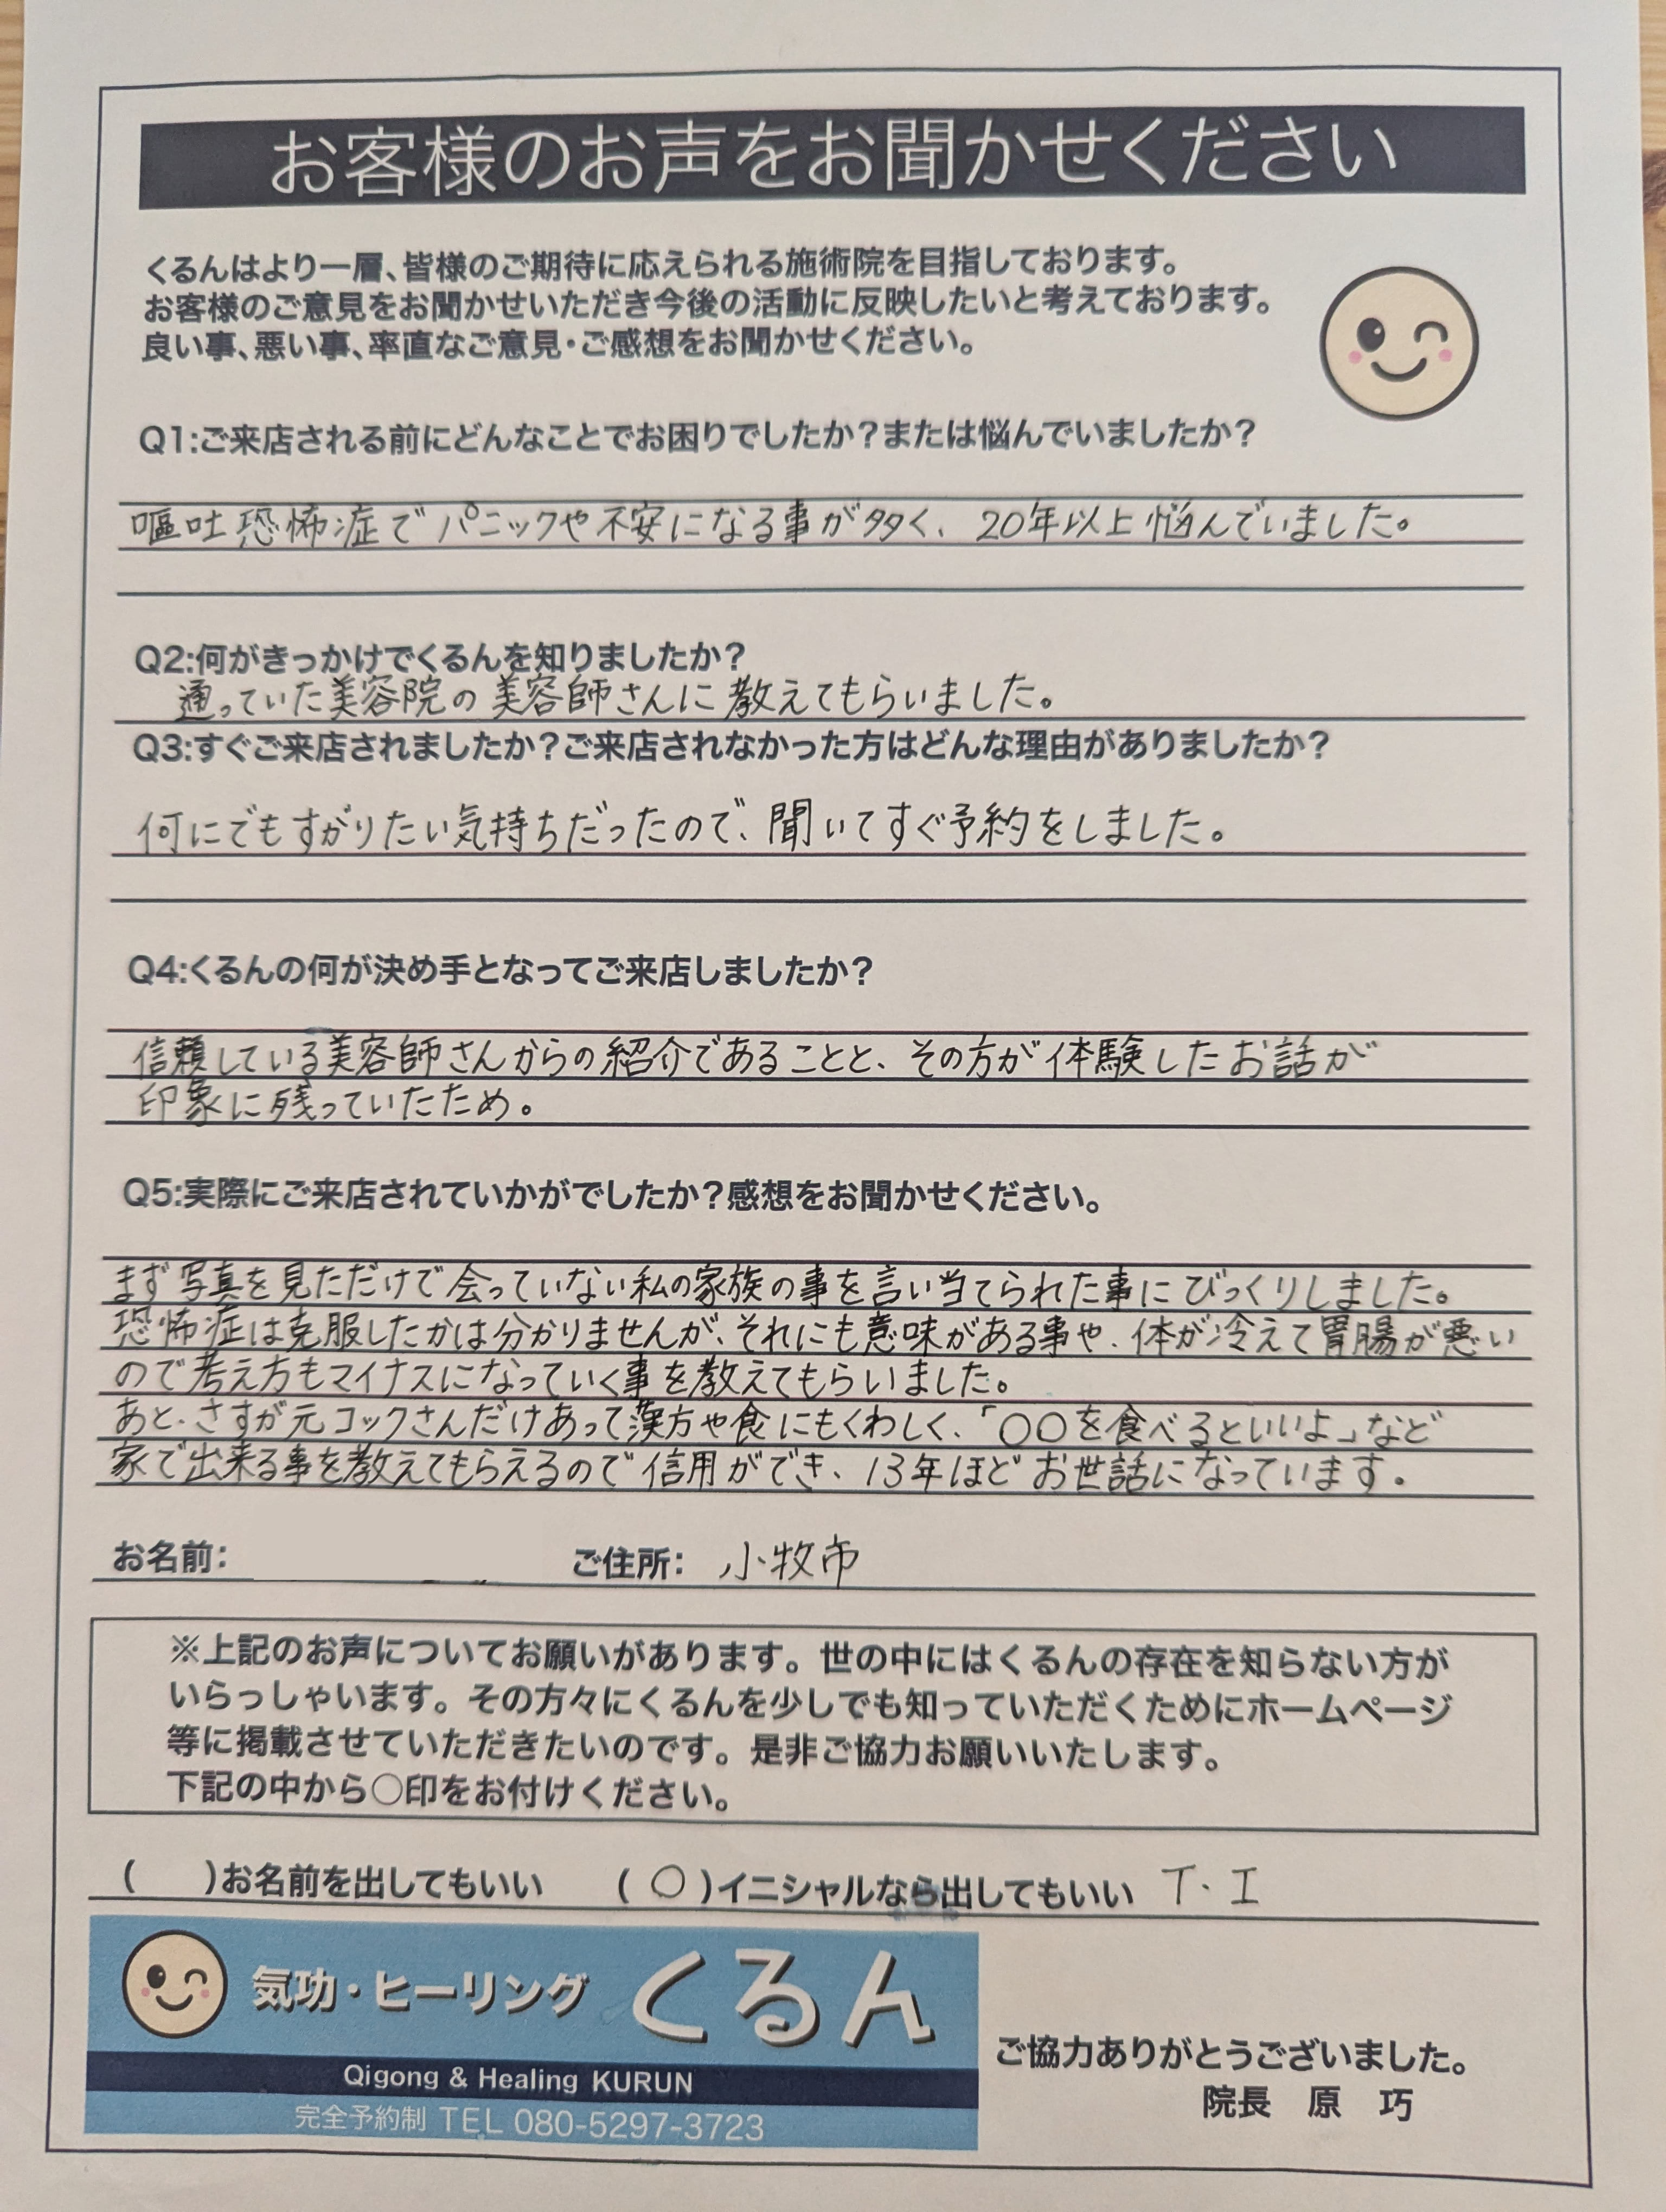 お客様のお声をお聞かせください
くるんはより一層、皆様のご期待に応えられる施術院を目指しております。
お客様のご意見をお聞かせいただき今後の活動に反映したいと考えております。
良い事、悪い事、率直なご意見・ご感想をお聞かせください。
Q1:ご来店される前にどんなことでお困りでしたか?または悩んでいましたか?
嘔吐恐怖症でパニックや不安になる事が多く、20年以上悩んでいました。
Q2:何がきっかけでくるんを知りましたか?
通っていた美容院の美容師さんに教えてもらいました。
Q3:すぐご来店されましたか?ご来店されなかった方はどんな理由がありましたか?
何にでもすがりたい気持ちだったので、聞いてすぐ予約をしました。
Q4:くるんの何が決め手となってご来店しましたか?
信頼している美容師さんからの紹介であることと、その方が体験したお話が
印象に残っていたため。
Q5:実際にご来店されていかがでしたか?感想をお聞かせください。
まず写真を見ただけで会っていない私の家族の事を言い当てられた事にびっくりしました。
恐怖症は克服したかは分かりませんが、それにも意味がある事や、体が冷えて胃腸が悪い
ので考え方もマイナスになっていく事を教えてもらいました。
あと、さすが元コックさんだけあって漢方や食にもくわしく、「〇〇を食べるといいよ」など
家で出来る事を教えてもらえるので信用ができ、13年ほどお世話になっています。
お名前: ご住所: 小牧市
※上記のお声についてお願いがあります。世の中にはくるんの存在を知らない方が
いらっしゃいます。その方々にくるんを少しでも知っていただくためにホームページ
等に掲載させていただきたいのです。是非ご協力お願いいたします。
下記の中から〇印をお付けください。
( )お名前を出してもいい (〇)イニシャルなら出してもいい T・I
気功・ヒーリング くるん
Qigong & Healing KURUN
完全予約制 TEL 080-5297-3723
ご協力ありがとうございました。
院長 原 巧